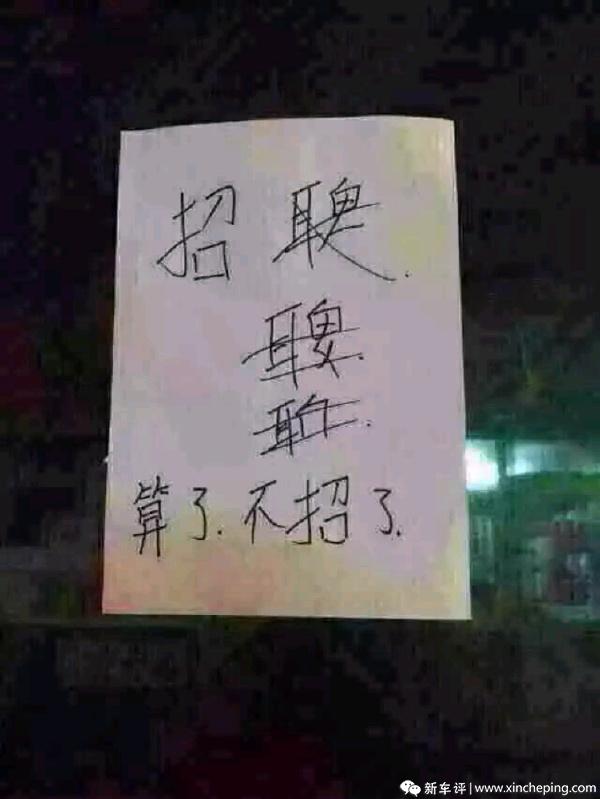 招聘.
算了.不招了.
新车评|www.xincheping.com